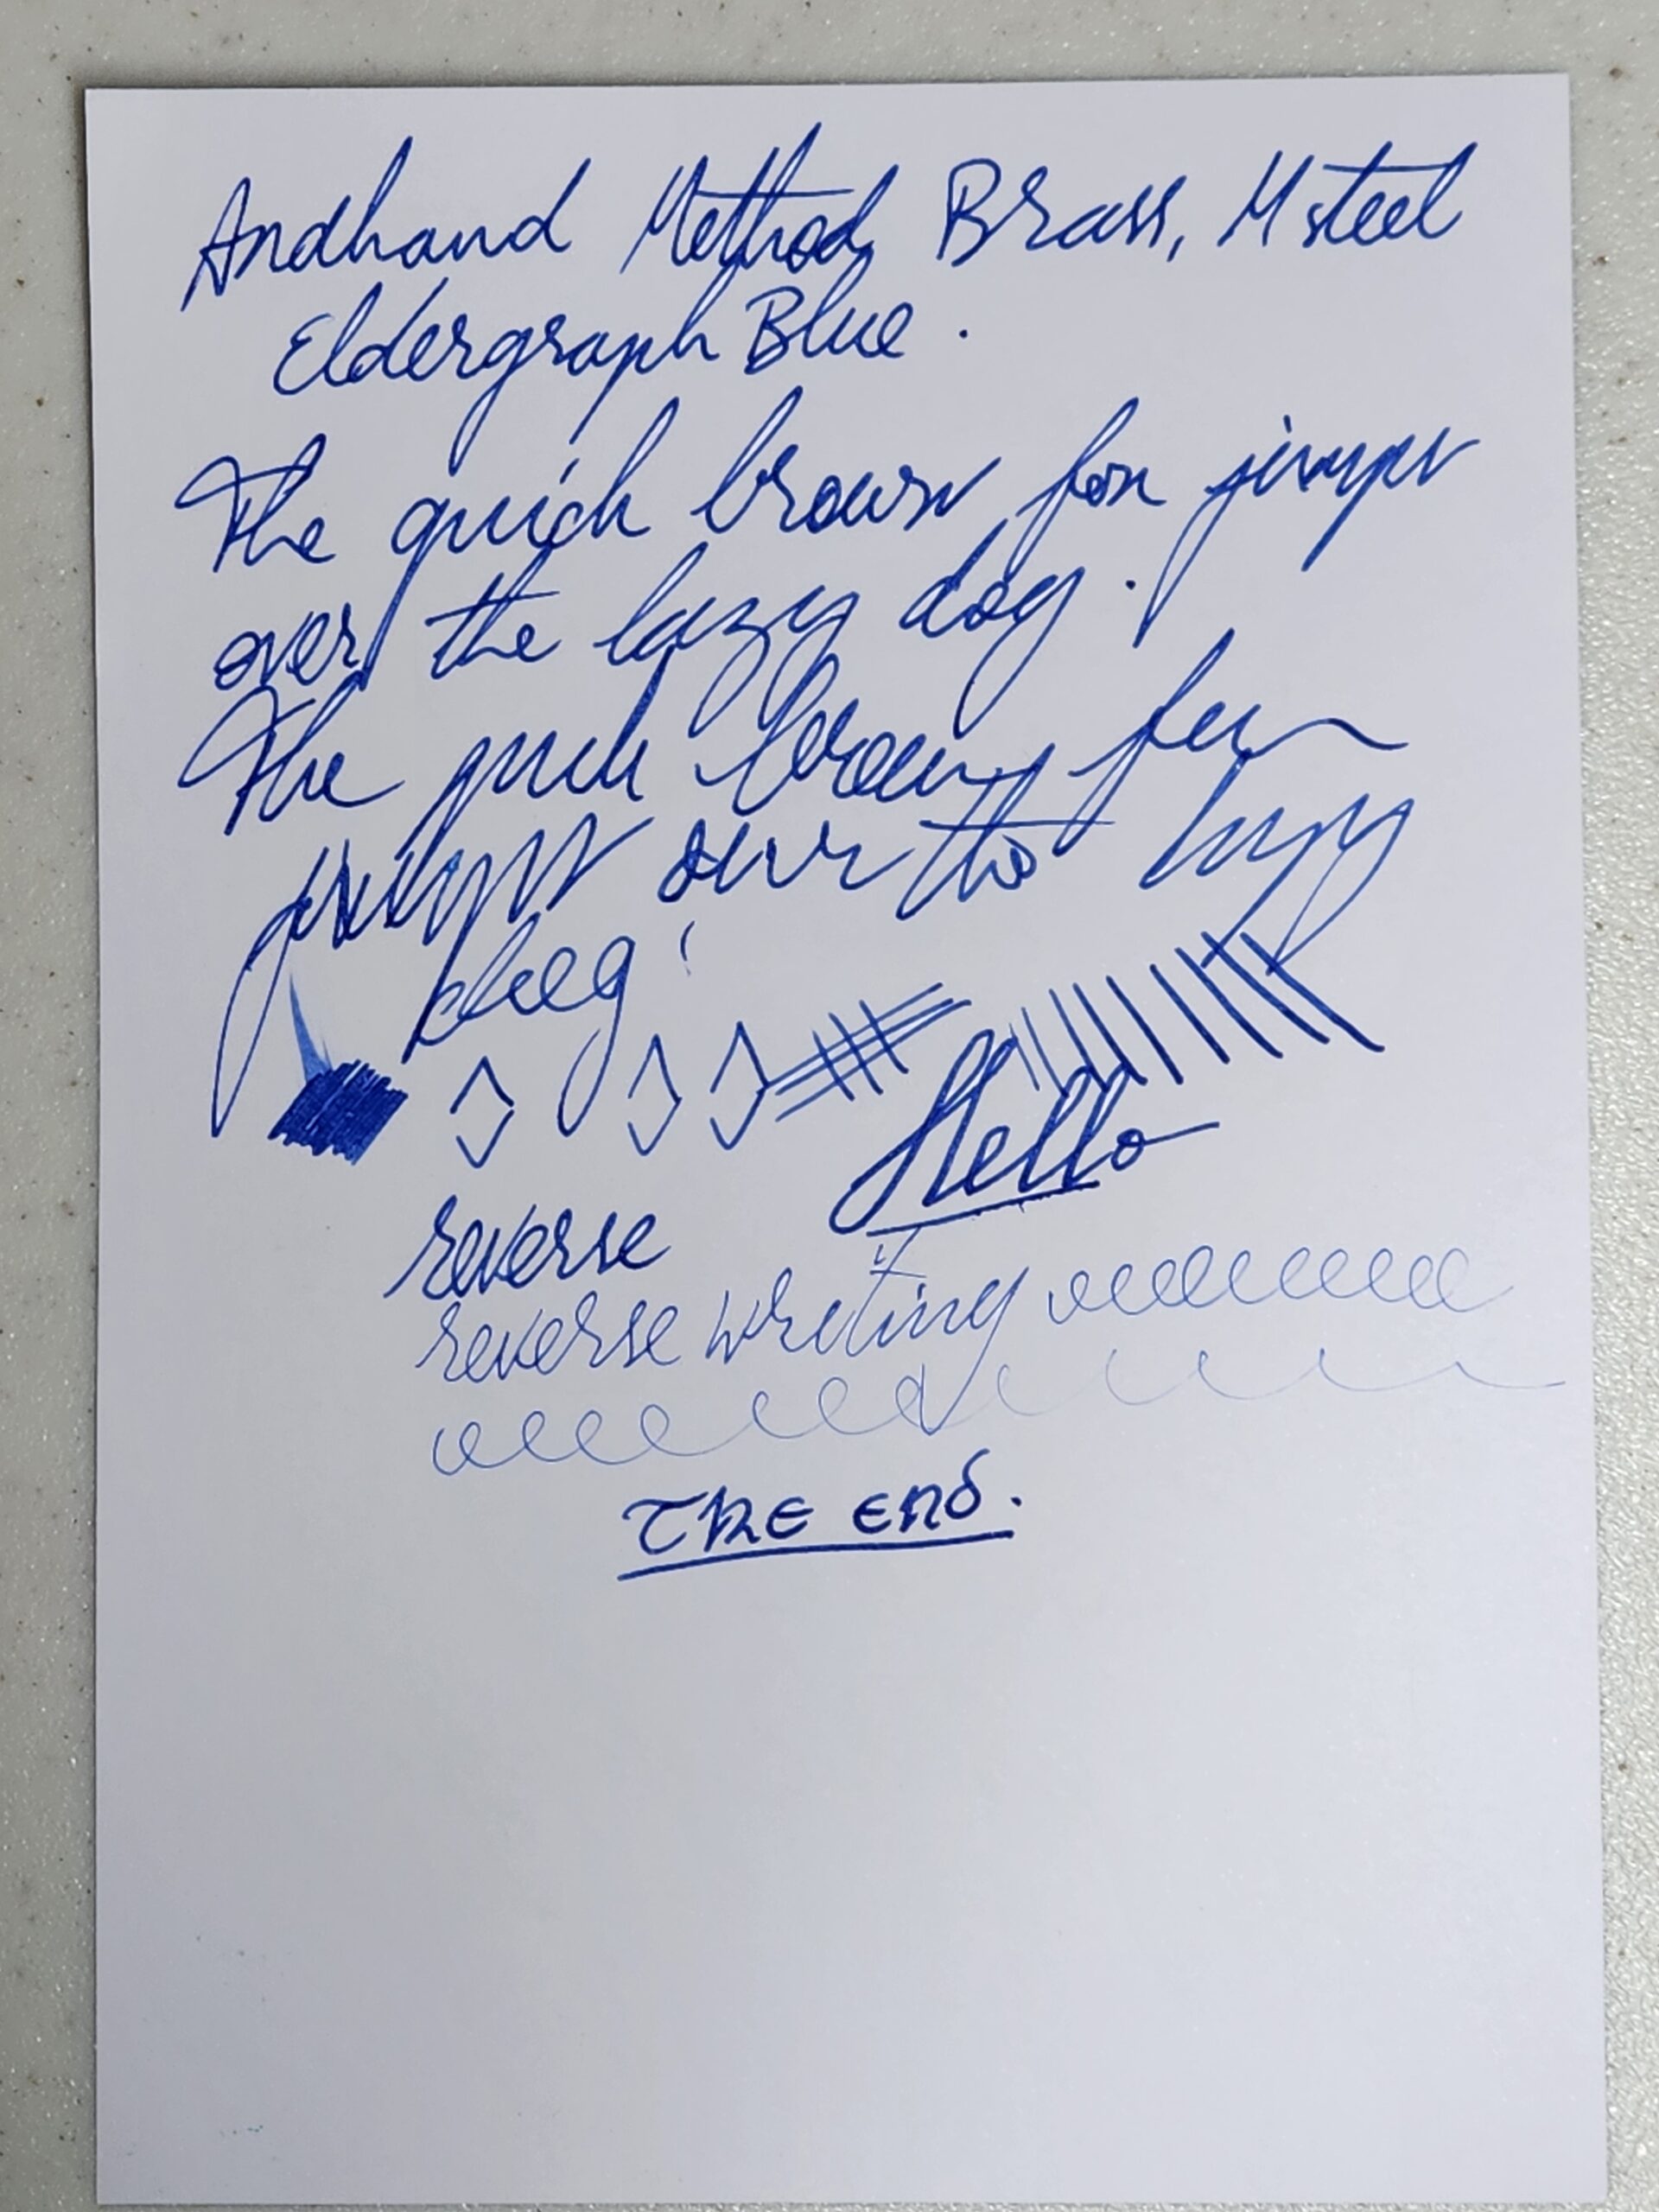 Andhand Method Brass, M steel
Eldergraph Blue.
The quick brown fox jumps
over the lazy dog.
The quick brown fox
jumps over the lazy
dog!
Hello
reverse
reverse writing
The end.